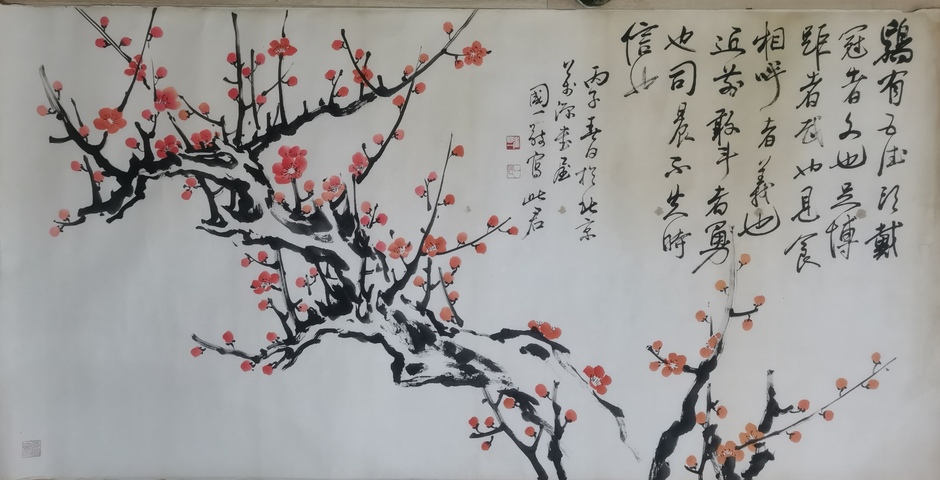 鷄有五德頭戴
冠者文也足搏
距者武也見食
相呼者義也
近前敢斗者勇
也司晨不失時
信也
丙子春日於北京
國一寫此君